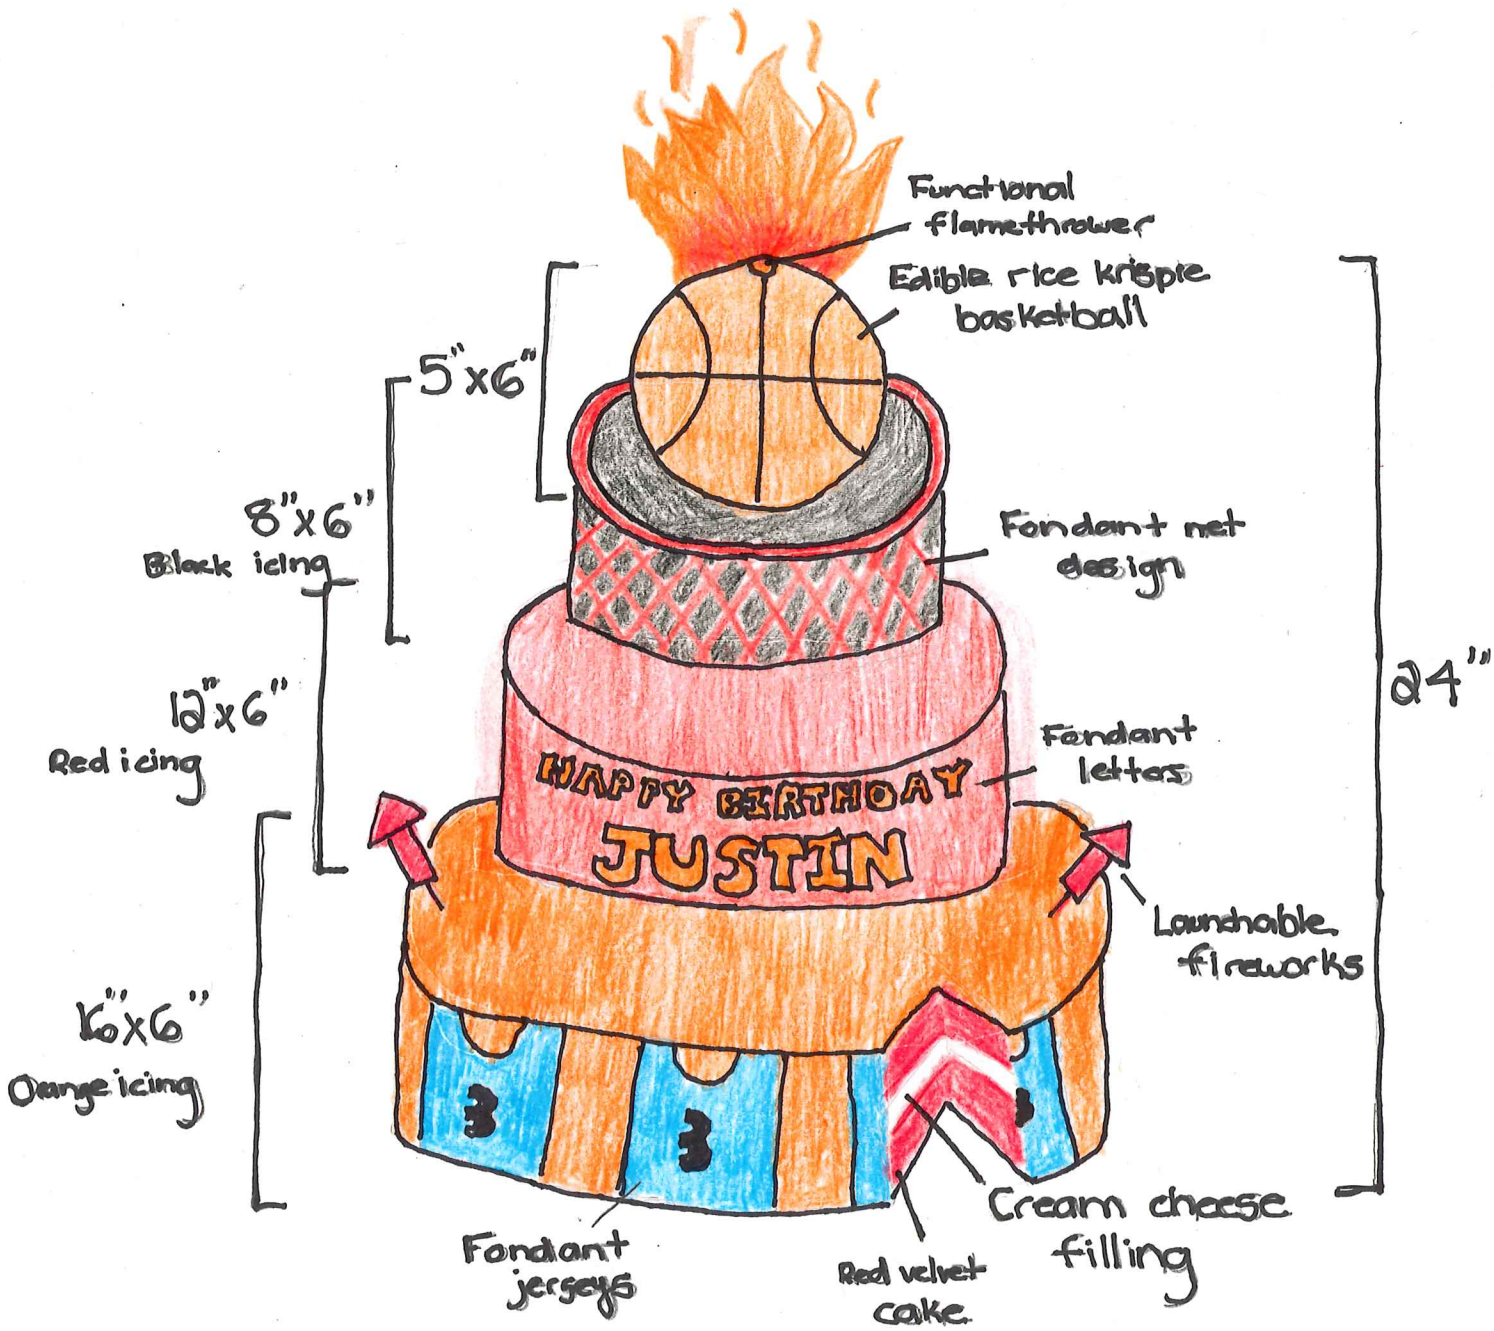 Functional
flamethrower
Edible rice krispie
basketball
5"x6"
8"x6"
Black icing
Fondant net
design
24"
12"x6"
Red icing
Fondant
letters
HAPPY BIRTHDAY
JUSTIN
Launchable
fireworks
16"x6"
Orange icing
3
3
3
Fondant
jerseys
Red velvet
cake
Cream cheese
filling